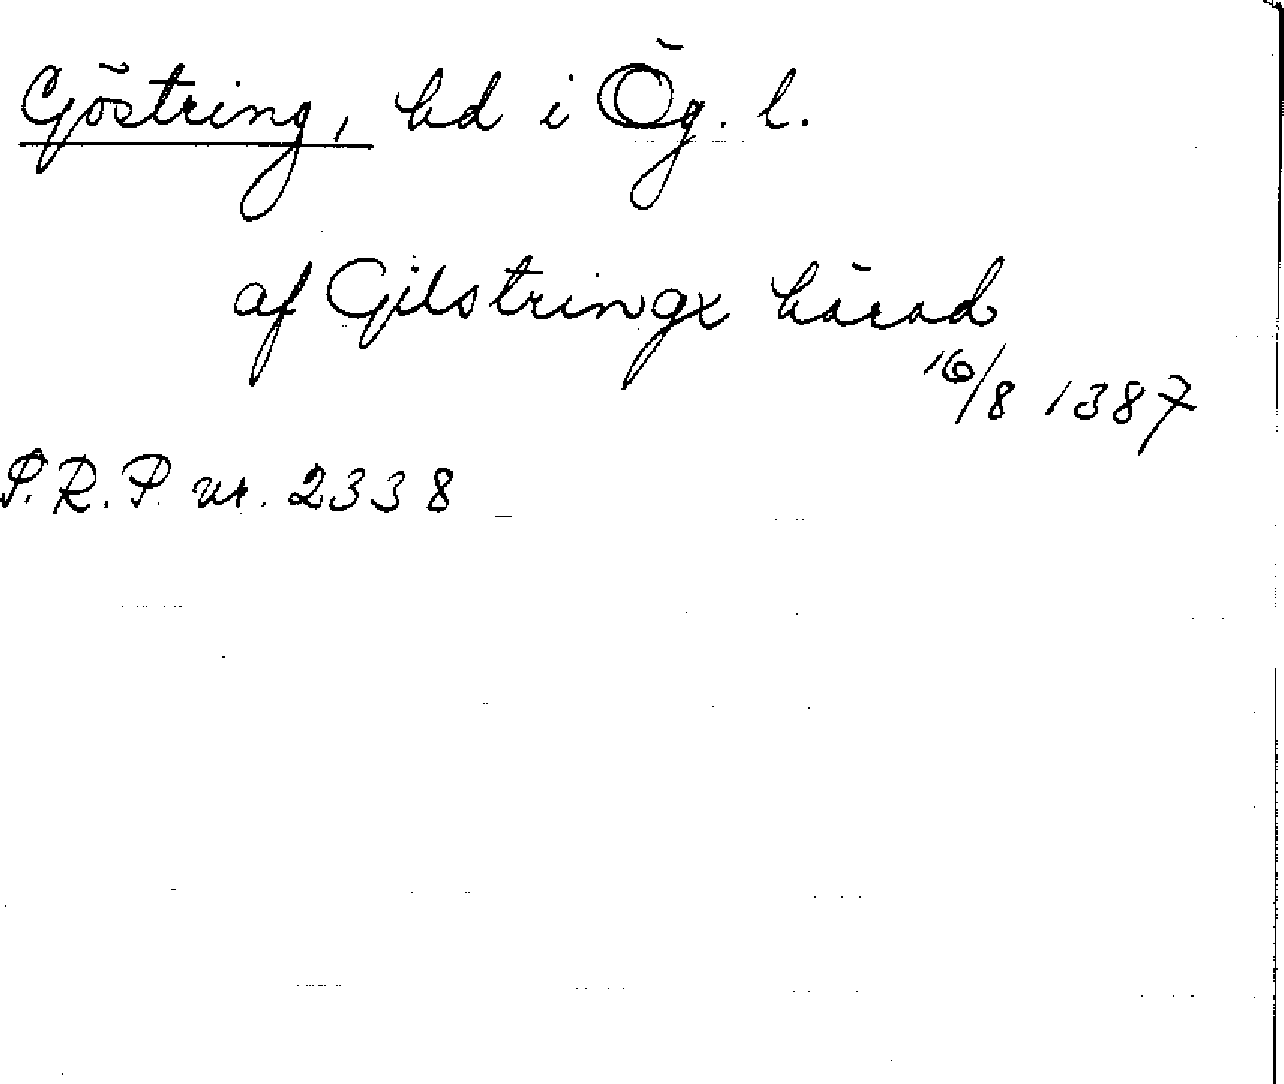 Göstring, hd i Ög. l.
af Gilstringx härad
16/8 1387
S.R.P. nr. 2338